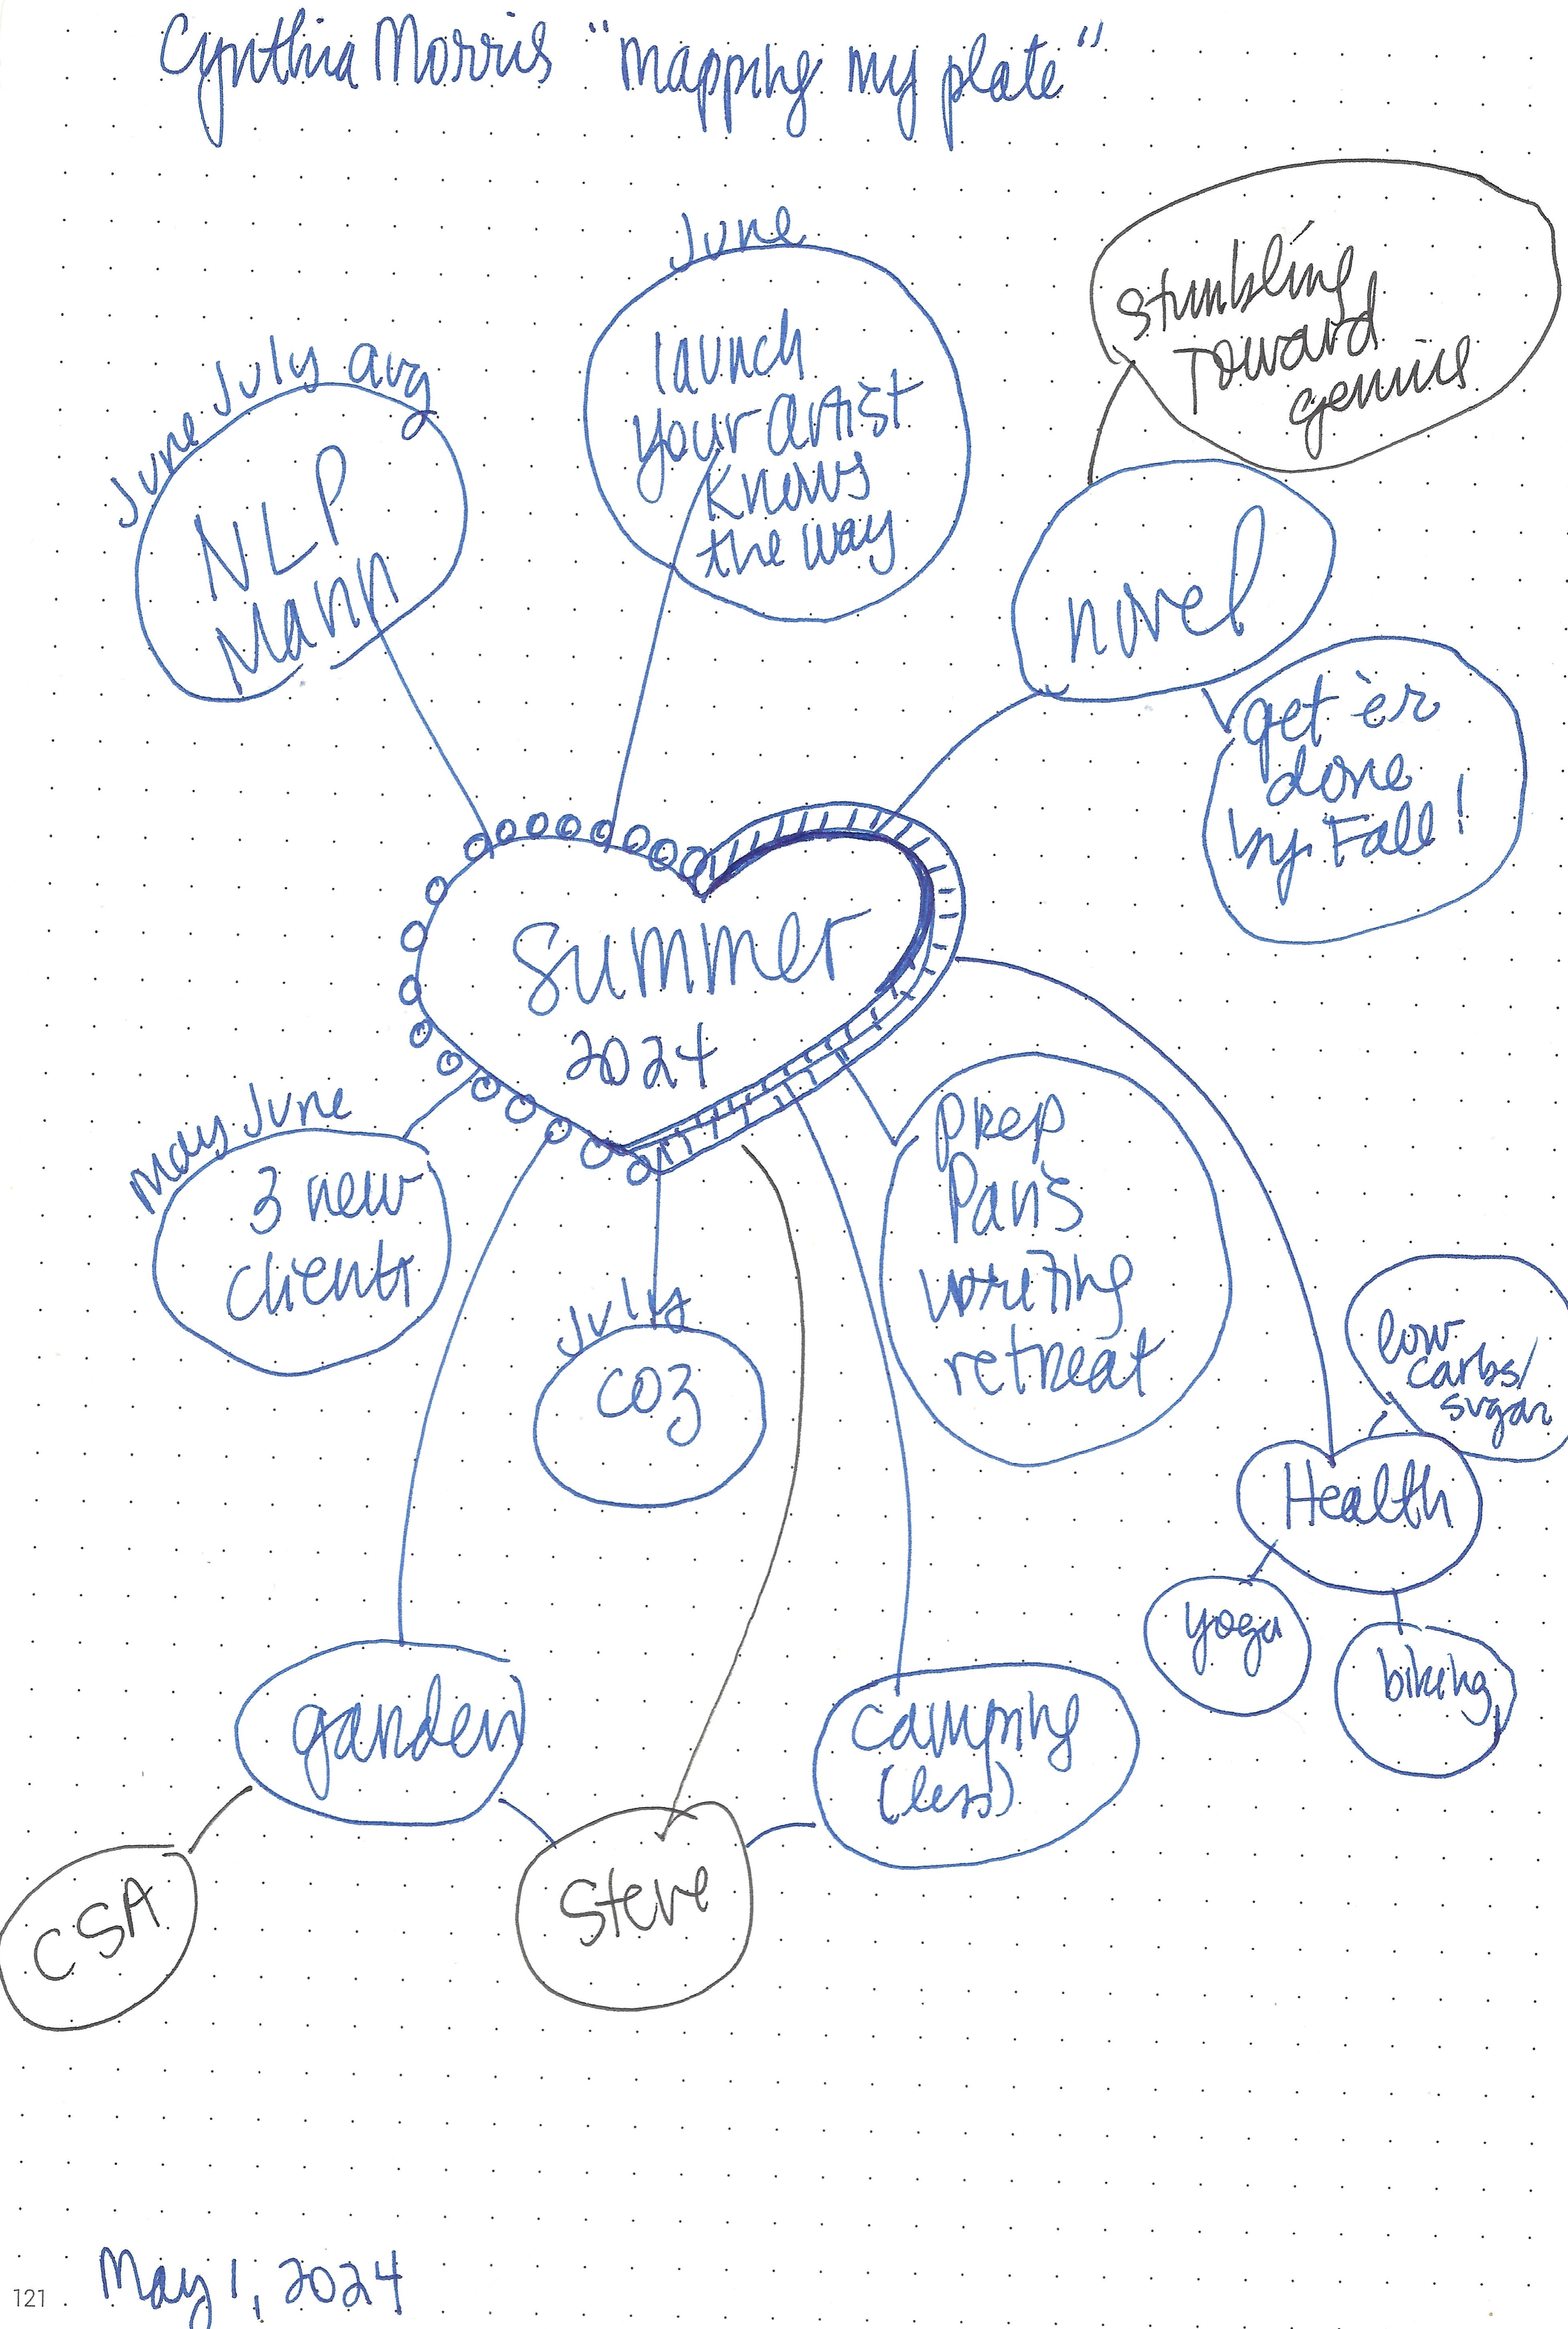 Cynthia Morris "mapping my plate"
June
launch
your artist
knows
the way
Stumbling
Toward
genius
June July aug
NLP
Mann
novel
get 'er
done
by Fall!
Summer
2024
may June
3 new
clients
July
CO3
prep
Paris
writing
retreat
low
carbs/
sugar
Health
yoga
biking
garden
camping
(less)
CSA
Steve
May 1, 2024
121